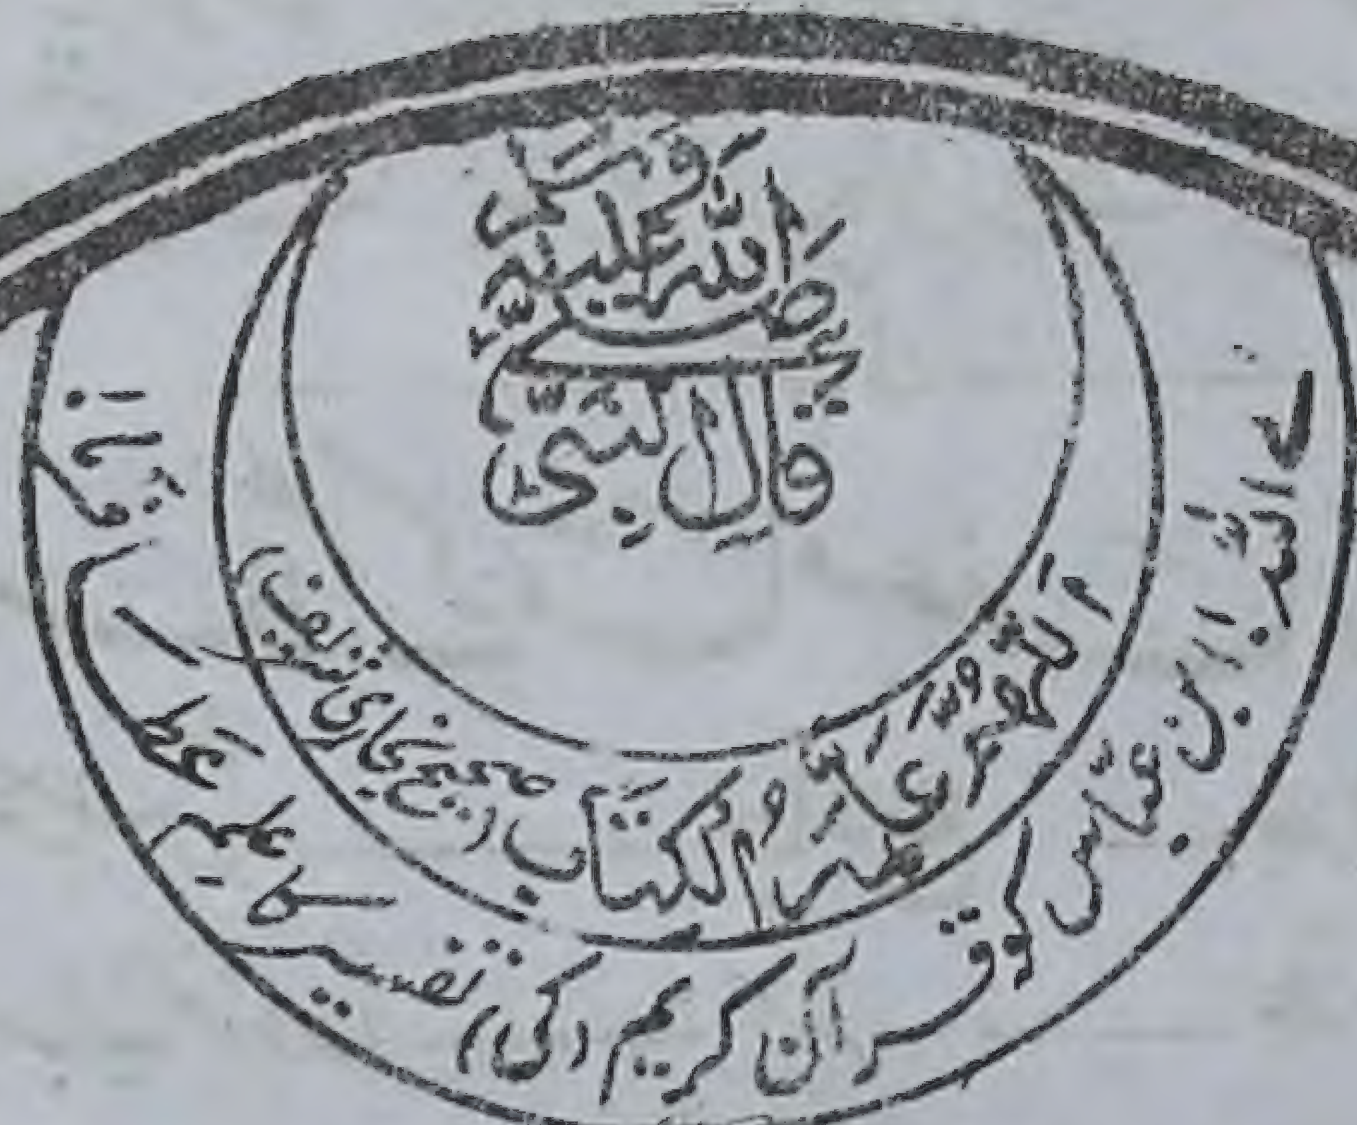 قَالَ النَّبِيُّ
صَلَّى اللّٰهُ عَلَيْهِ وَسَلَّمَ
اَللّٰهُمَّ عَلِّمْهُ الْكِتَابَ (صحیح بخاری شریف)
اے اللہ! ابن عبّاس کو قرآن کریم (کی) تفسیر کا علم عطا فرما!